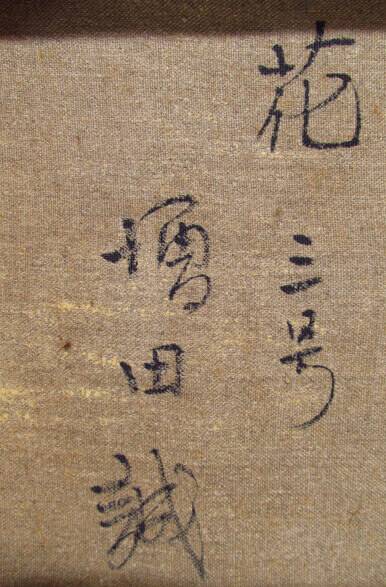 花 三号
増田誠